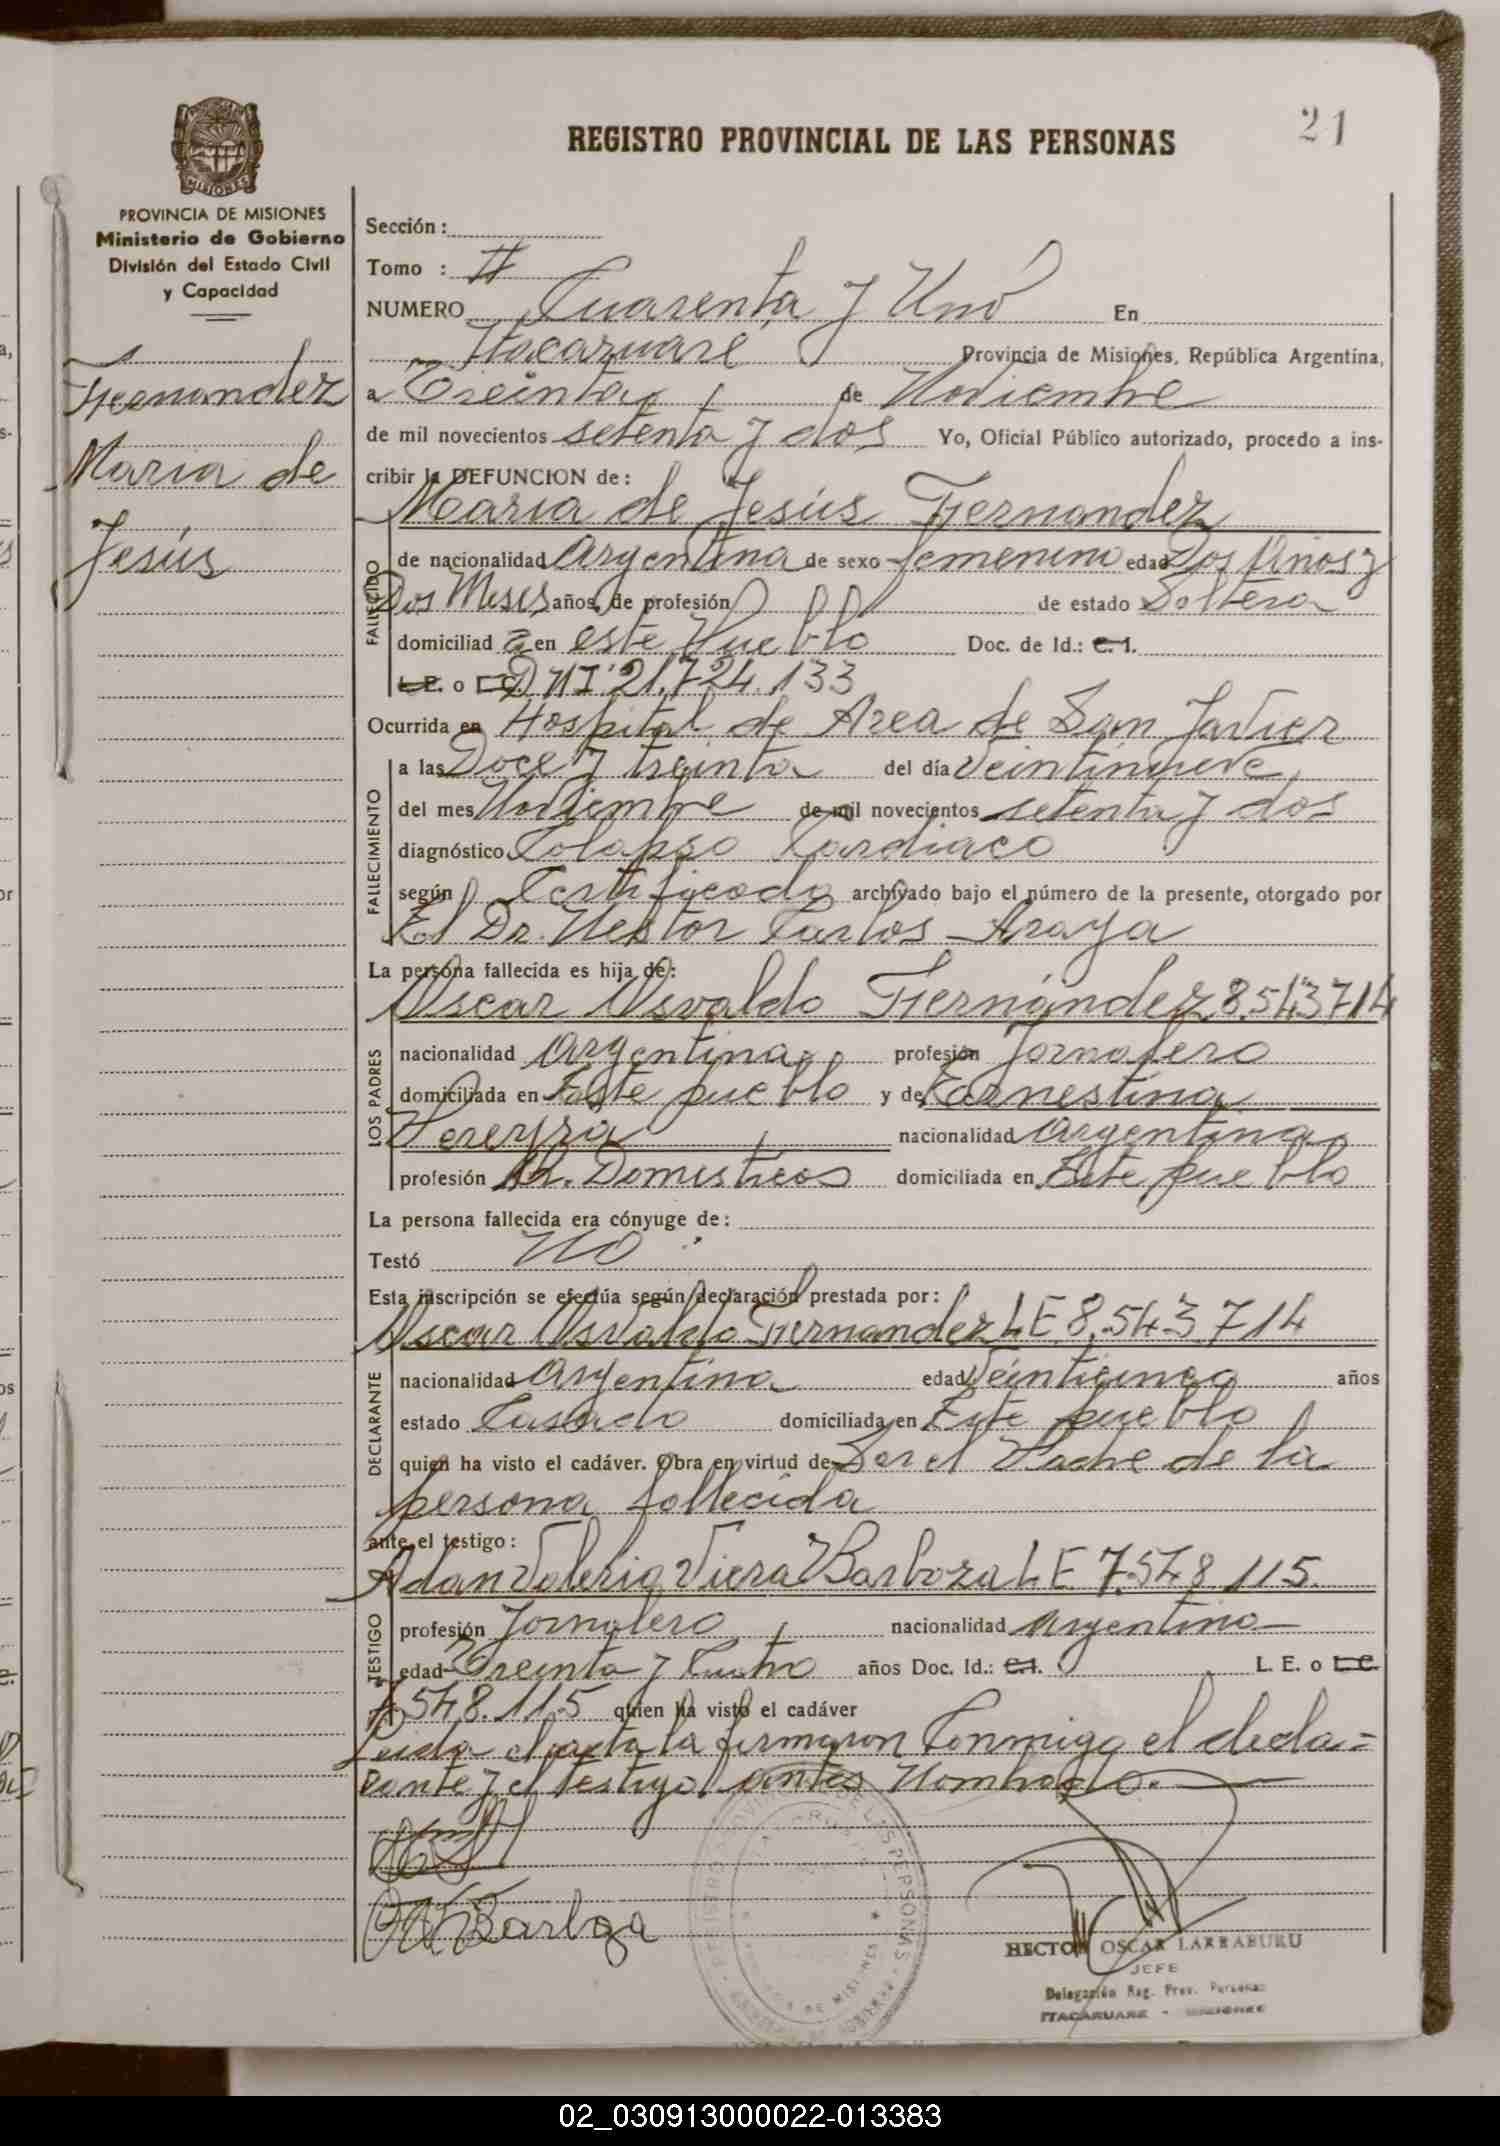 21
REGISTRO PROVINCIAL DE LAS PERSONAS
MISIONES
PROVINCIA DE MISIONES
Ministerio de Gobierno
División del Estado Civil
y Capacidad
Fernandez
Maria de
Jesús
Sección:
Tomo : II
NUMERO Cuarenta y Uno En
Itacaruare Provincia de Misiones, República Argentina,
a Treinta de Noviembre
de mil novecientos setenta y dos Yo, Oficial Público autorizado, procedo a ins-
cribir la DEFUNCION de:
Maria de Jesús Fernandez
FALLECIDO
de nacionalidad Argentina de sexo femenino edad Dos Años y
Dos Meses años, de profesión de estado Soltera
domiciliad a en este Pueblo Doc. de Id.: C. I.
L. E. o L. C. DNI 21.724.133
Ocurrida en Hospital de Area de San Javier
FALLECIMIENTO
a las Doce y treinta del día Veintinueve
del mes Noviembre de mil novecientos setenta y dos
diagnóstico Colapso Cardiaco
según Certificado archivado bajo el número de la presente, otorgado por
El Dr. Nestor Carlos Araya
La persona fallecida es hija de:
Oscar Osvaldo Fernández 8.543714
LOS PADRES
nacionalidad Argentina profesión Jornalero
domiciliada en Este pueblo y de Ernestina
Pereyra nacionalidad Argentina
profesión Q. Domesticos domiciliada en Este pueblo
La persona fallecida era cónyuge de:
Testó NO
Esta inscripción se efectúa según declaración prestada por:
Oscar Osvaldo Fernandez LE 8.543714
DECLARANTE
nacionalidad Argentina edad Veinticinco años
estado Casado domiciliada en Este pueblo
quien ha visto el cadáver. Obra en virtud de Ser el Padre de la
persona fallecida
ante el testigo:
Adan Valerio Viera Barboza LE 7.548.115.
TESTIGO
profesión Jornalero nacionalidad Argentina
edad Treinta y Cuatro años Doc. Id.: C. I. L. E. o L. C.
7.548.115 quien ha visto el cadáver
Leida el acta la firmaron Conmigo el decla=
rante y el testigo antes Nombrado.
Barboza
HECTOR OSCAR LARRABURU
JEFE
Delegación Reg. Prov. Personas
ITACARUARE - MISIONES
02_030913000022-013383